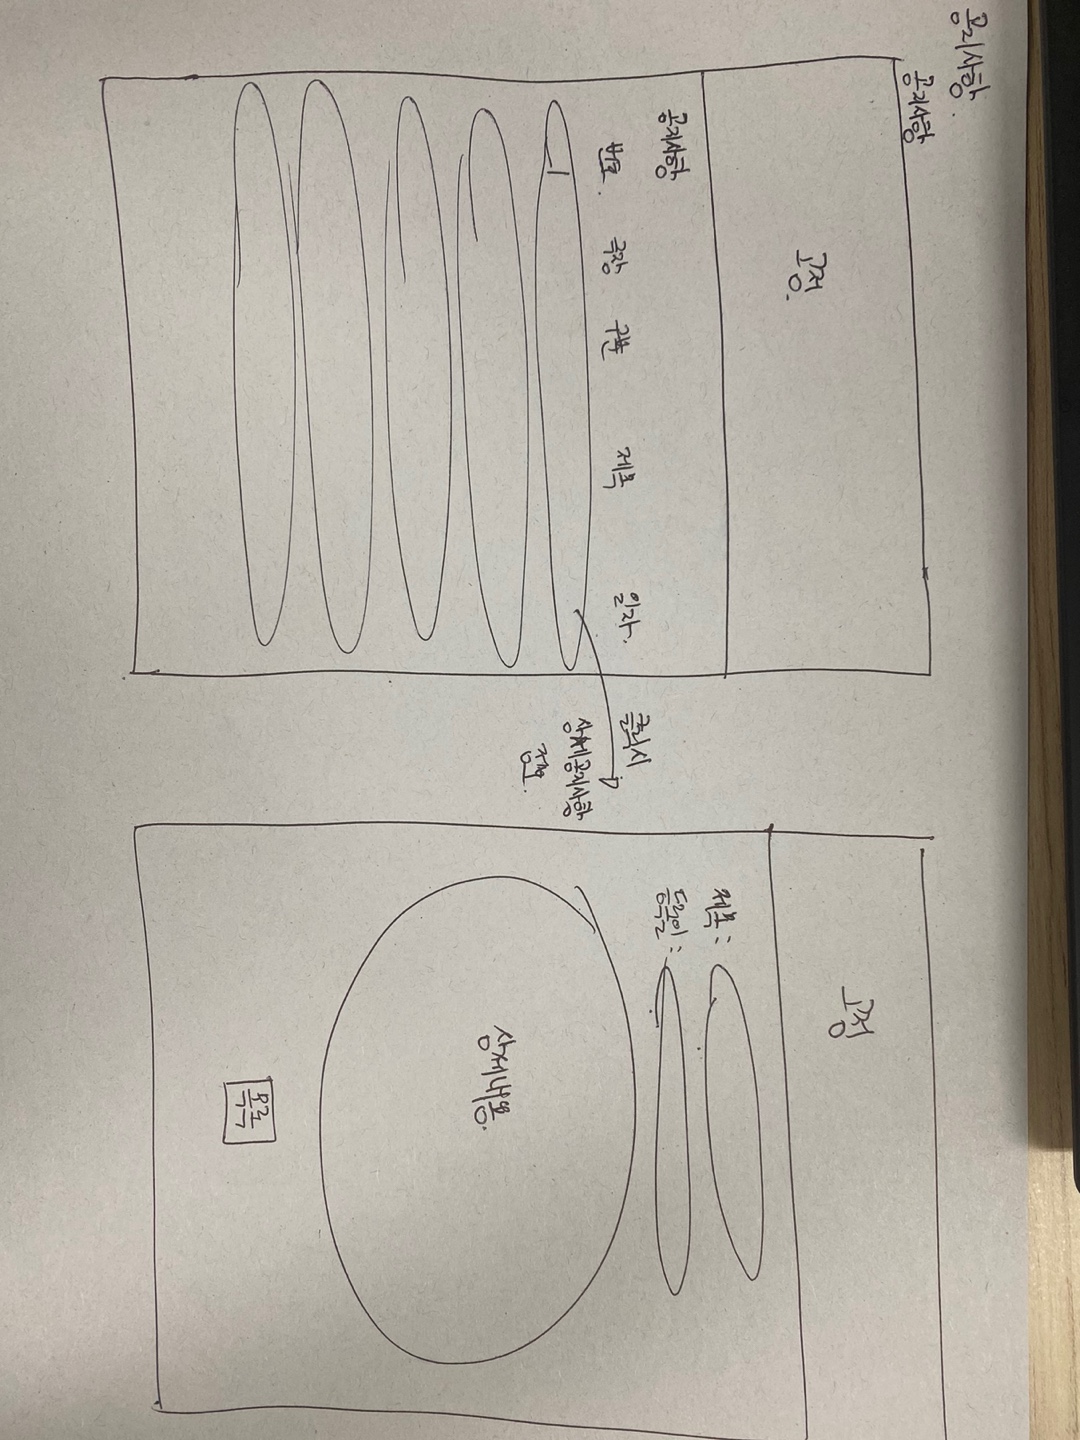 공지사항.
공지사항
고정.
공지사항
번호. 극장 구분 제목 일자.
1
클릭시
상세공지사항
전환.
고정
제목 :
등록일 :
상세내용.
목록